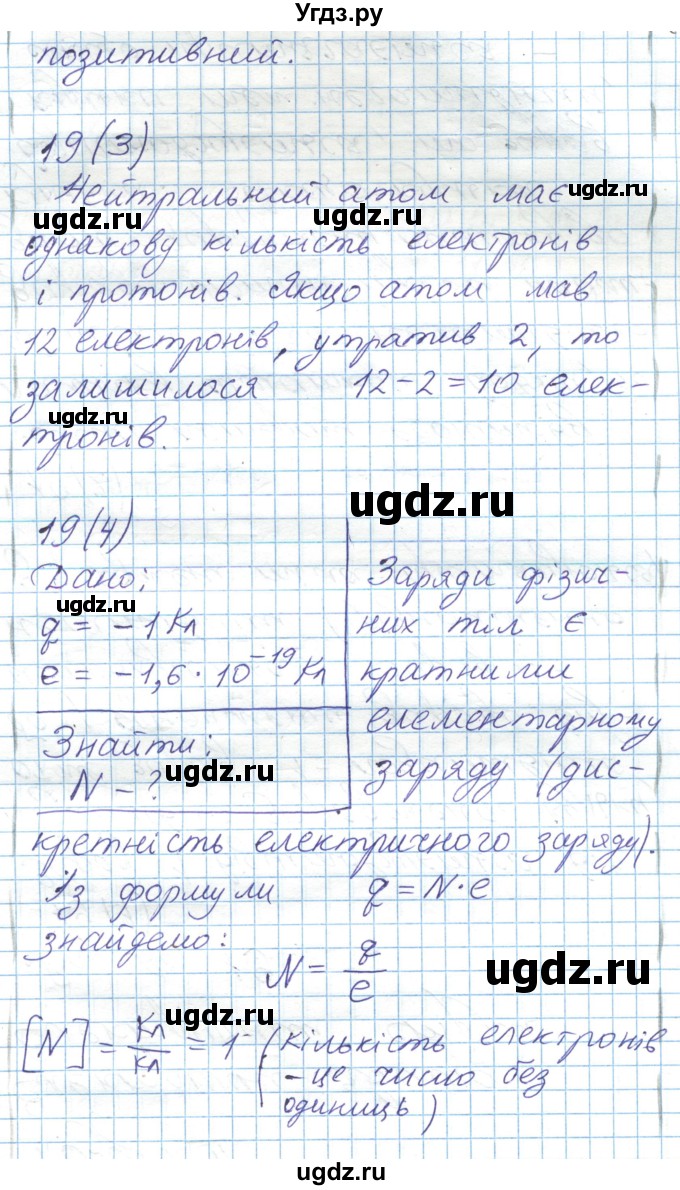 Угдз.ру
позитивний.
19(3)
Нейтральний атом має
ugdz.ru ugdz.ru ugdz.ru
однакову кількість електронів
і протонів. Якщо атом мав
12 електронів, утратив 2, то
залишилося 12-2=10 елек-
ugdz.ru
тронів.
ugdz.ru
19(4)
Дано:
ugdz.ru
q = -1 Кл
e = -1,6·10⁻¹⁹ Кл
Знайти:
ugdz.ru
N - ?
Заряди фізич-
них тіл є
кратними
елементарному
заряду (дис-
кретність електричного заряду).
Із формули q = N·e
знайдемо:
N = q/e
ugdz.ru
ugdz.ru
[N] = Кл/Кл = 1 (кількість електронів
- це число без
одиниць)
ugdz.ru